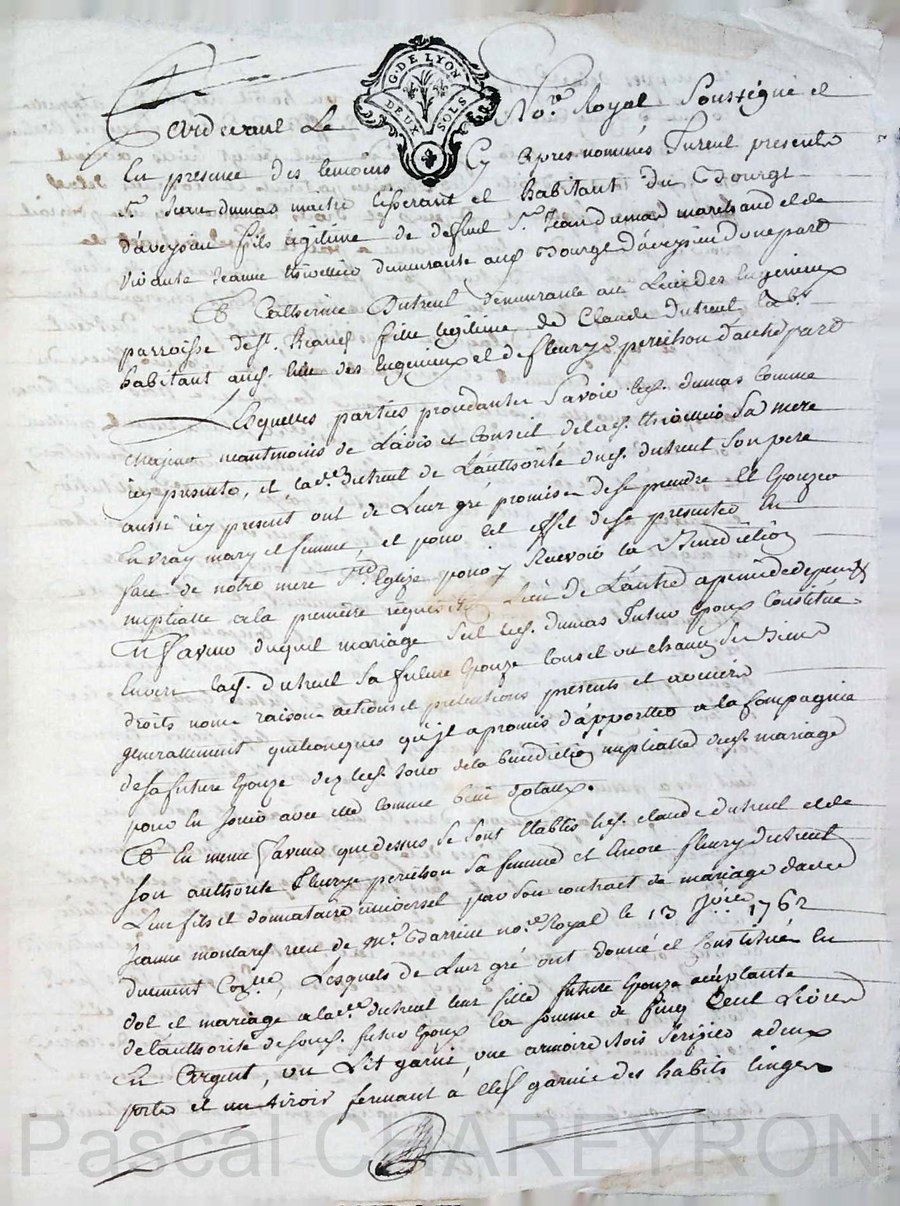 G. DE LYON
DEUX SOLS
Pardevant Le No.re Royal Soussigné et
En presence des temoins Cy Apres nommés furent presents
S.r Jean dumas maitre tisserant et habitant du Bourgt
d'aveysieu fils legitime de deffunt S.r Jean Dumas marchand et de
vivante Jeanne demeurante aud Bourgt D'aveysieu d'une part
Et Catherine Dutreuil demeurante au Lieu des Ingenieux
parroisse de St. fille legitime de Claude dutreuil Lab.r
habitant aud. lieu des Ingenieux et de fleurye perichon d'autre part
Lesquelles parties procedantes Savoir led. dumas Comme
majeur neantmoins de L'avis et Conseil de lad. sa mere
icy presente, et lad.e dutreuil de L'authorité dud. dutreuil son pere
aussi icy present ont de Leur gré promis de se prendre et Epouzer
en vray mary et femme, et pour cet effet de se presenter En
face de notre mere S.te Eglize pour y Recevoir la Benediction
nuptialle a la premiere requis.on de L'un de L'autre a peine de depens
En faveur duquel mariage led. dumas futur Epoux Constitué
Envers lad. dutreuil sa future Epouze Conseil de Biens
droits noms raisons actions et pretentions presents et avenir
generallement quelconques qu'il a promis d'apporter a la Compagnie
de sa future Epouze dez led. jour de la benediction nuptialle dud. mariage
pour en jouir avec elle comme bien dotaux.
Et En meme faveur que dessus se sont Etablis led. claude dutreuil et de
son authorité fleurye perichon sa femme et Encore fleury dutreuil
Leur fils et donnataire universel par son contract de mariage d'avec
Jeanne montaret recu de M.e Barrieu no.re Royal le 13 1762
duement Con.lé, Lesquels de Leur gré ont donné et Constitué En
dot et mariage a lad.e dutreuil leur fille future Epouze acceptante
de l'authorité de soud. futur Epoux la somme de Cinq Cent Livres
En Argent, un Lit garni, une armoire bois Serizier a deux
portes et un tiroir fermant à clef garnie des habits linges
Pascal CHAREYRON